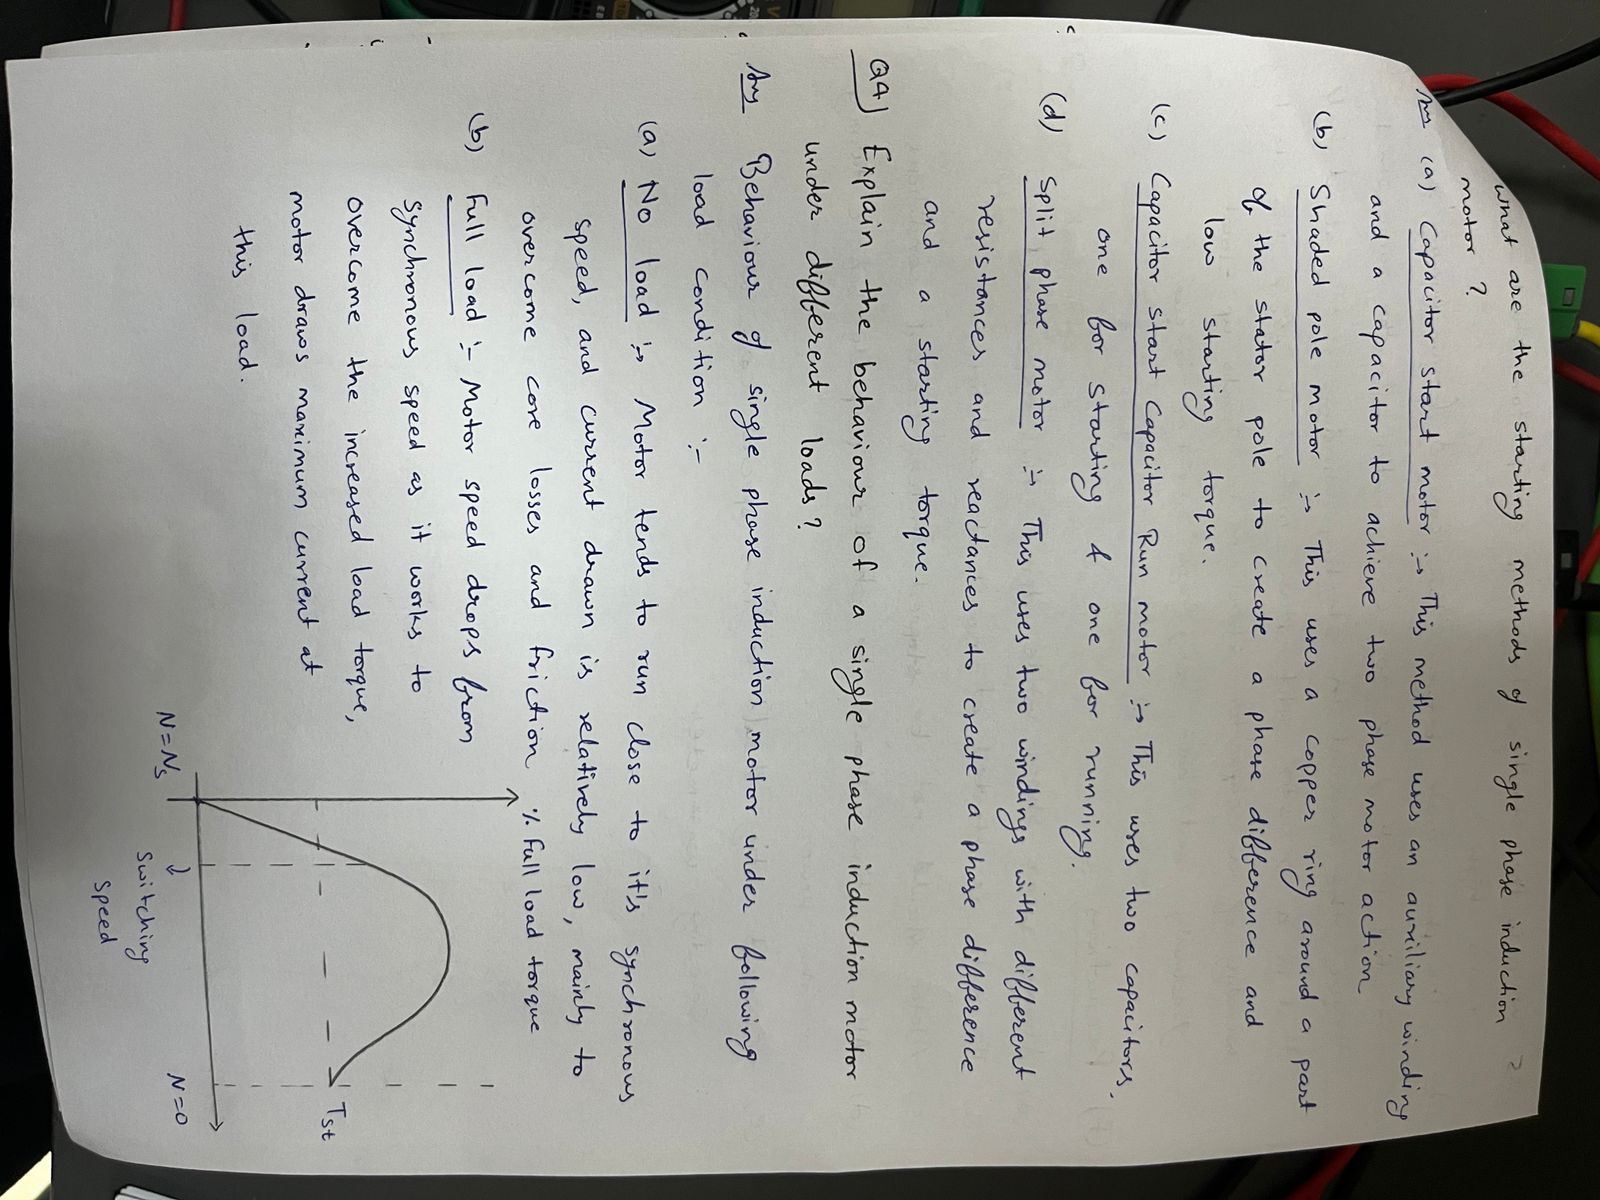 What are the starting methods of single phase induction ?
motor ?
Ans (a) Capacitor start motor :→ This method uses an auxiliary winding
and a capacitor to achieve two phase motor action
(b) Shaded pole motor :→ This uses a copper ring around a part
of the stator pole to create a phase difference and
low starting torque.
(c) Capacitor start Capacitor Run motor :→ This uses two capacitors,
one for starting & one for running.
(d) Split phase motor :→ This uses two windings with different
resistances and reactances to create a phase difference
and a starting torque.
Q4) Explain the behaviour of a single phase induction motor
under different loads ?
Ans Behaviour of single phase induction motor under following
load condition :-
(a) No load :→ Motor tends to run close to it's synchronous
speed, and current drawn is relatively low, mainly to
overcome core losses and friction
% Full load torque
(b) Full load :- Motor speed drops from
synchronous speed as it works to
overcome the increased load torque,
motor draws maximum current at
this load.
Tst
N=Ns
N=0
Switching
speed